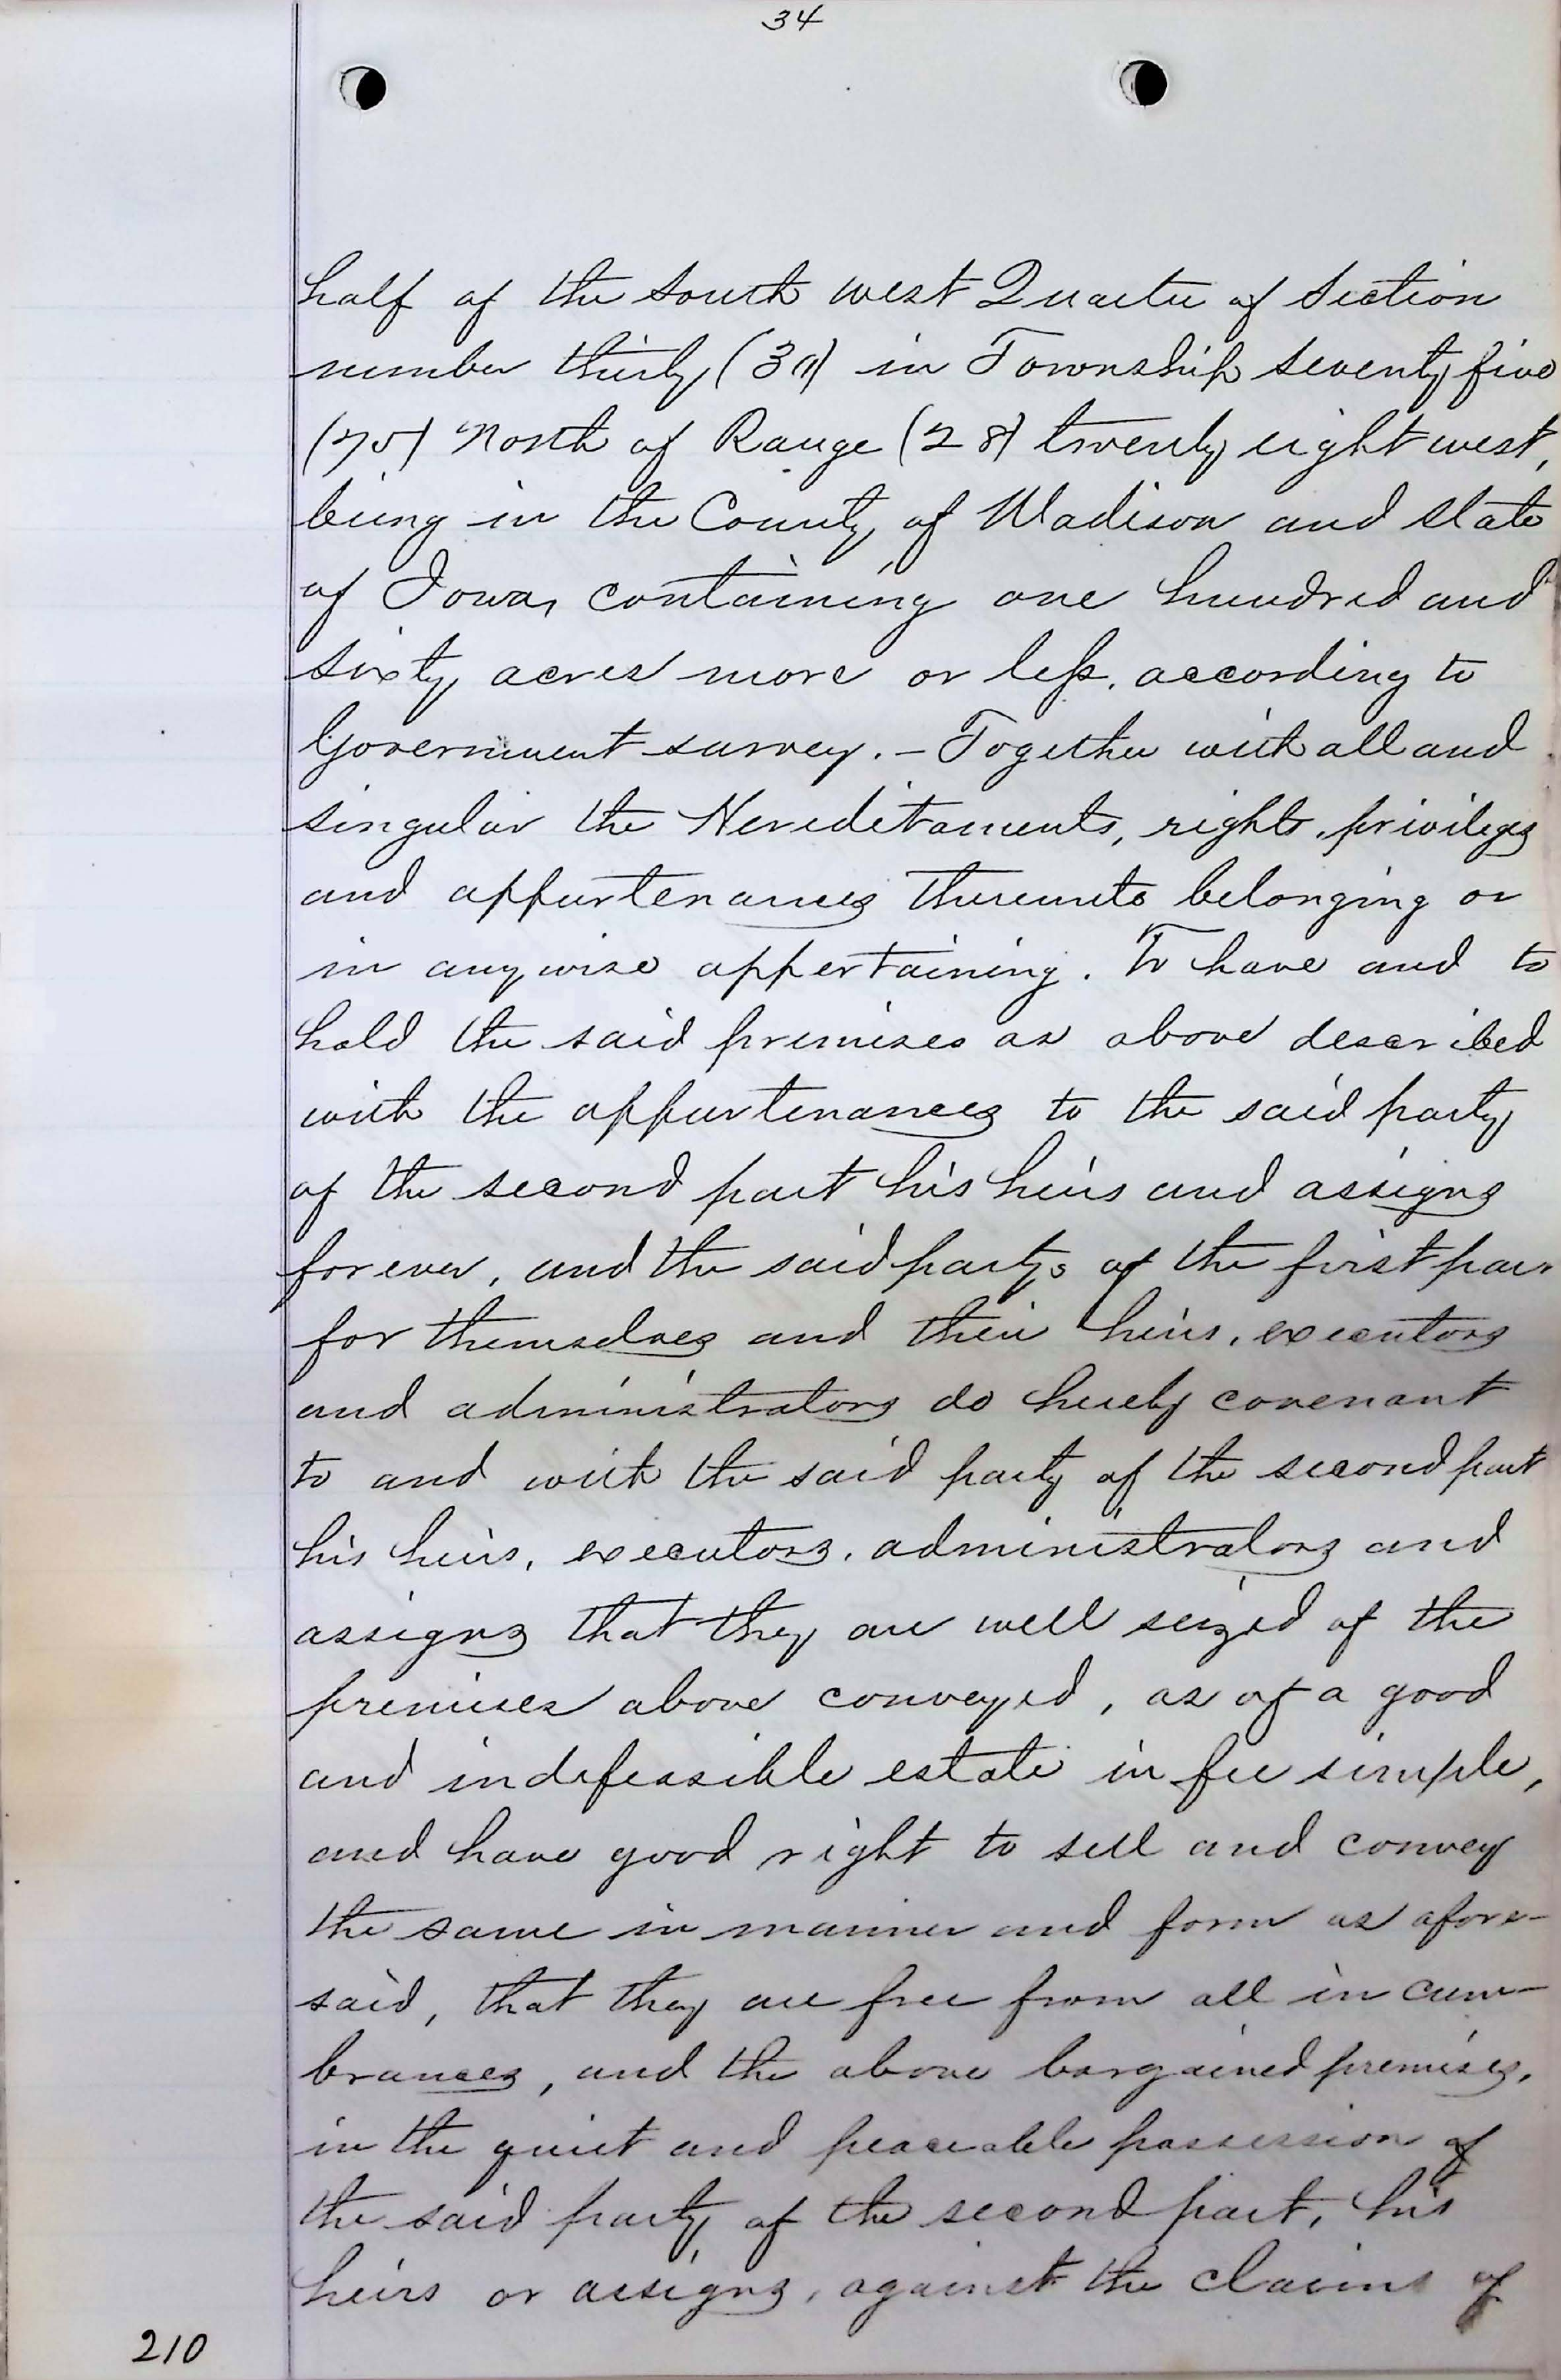 34
half of the South west Quarter of Section
number thirty (30) in Township seventy five
(75) North of Range (28) twenty eight west,
being in the County of Madison and State
of Iowa, containing one hundred and
sixty acres more or less, according to
Government survey. – Together with all and
singular the Hereditaments, rights, privileges
and appurtenances thereunto belonging or
in anywise appertaining. To have and to
hold the said premises as above described
with the appurtenances to the said party
of the second part his heirs and assigns
forever, and the said partys of the first par
for themselves and their heirs, executors
and administrators do hereby covenant
to and with the said party of the second part
his heirs, executors, administrators and
assigns that they are well seized of the
premises above conveyed, as of a good
and indefeasible estate in fee simple,
and have good right to sell and convey
the same in manner and form as afore-
said, that they are free from all in cum-
brances, and the above bargained premises,
in the quiet and peaceable possession of
the said party of the second part, his
heirs or assigns, against the claims of
210